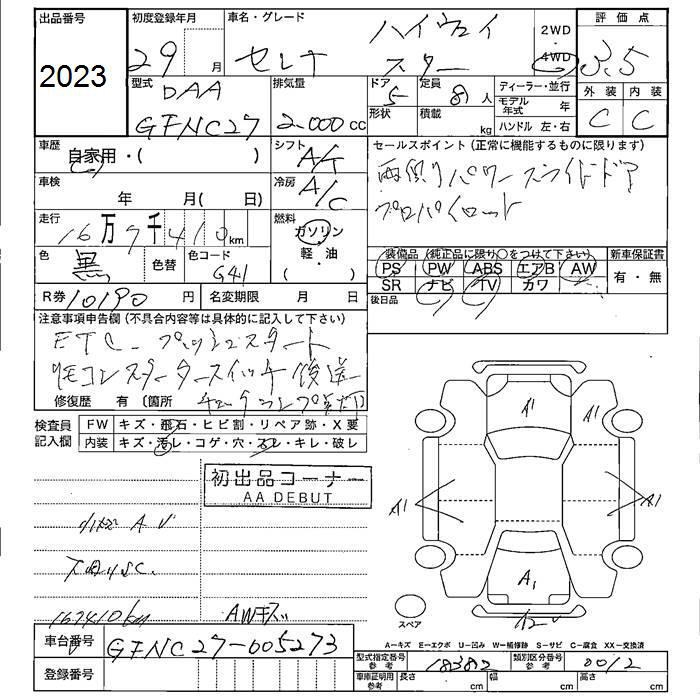 出品番号 初度登録年月 車名・グレード 2WD 評価点
2023 29 月 セレナ ハイウェイスター 4WD 3.5
型式 排気量 ドア 定員 ディーラー・並行 外装 内装
DAA 5 8 人 モデル年式 年 C C
GFNC27 2000 cc 形状 積載 kg ハンドル 左・右
車歴 シフト セールスポイント(正常に機能するものに限ります)
自家用・( ) A/T 両側パワースライドドア
車検 年 月( 日) 冷房 A/C プロパイロット
走行 16万7千410km 燃料 ガソリン
色 黒 色替 色コード G41 軽・油
装備品(純正品に限り○をつけて下さい) 新車保証書
PS PW ABS エアB AW 有・無
SR ナビ TV カワ
R券 10190 円 名変期限 月 日 後日品
注意事項申告欄(不具合内容等は具体的に記入して下さい)
ETC プッシュスタート
リモコンスタータースイッチ後送
修復歴 有(箇所 チェックランプ点灯
検査員記入欄 FW キズ・飛石・ヒビ割・リペア跡・X要
内装 キズ・汚レ・コゲ・穴・スレ・キレ・破レ
初出品コーナー
AA DEBUT
A1 A1
A1 A1
A1
167410km AWキズ スペア
A=キズ E=エクボ U=凹み W=補修跡 S=サビ C=腐食 XX=交換済
車台番号 GFNC27-005273
型式指定番号 参考 18382 類別区分番号 参考 0012
登録番号 車庫証明用 参考 長さ cm 幅 cm 高さ cm